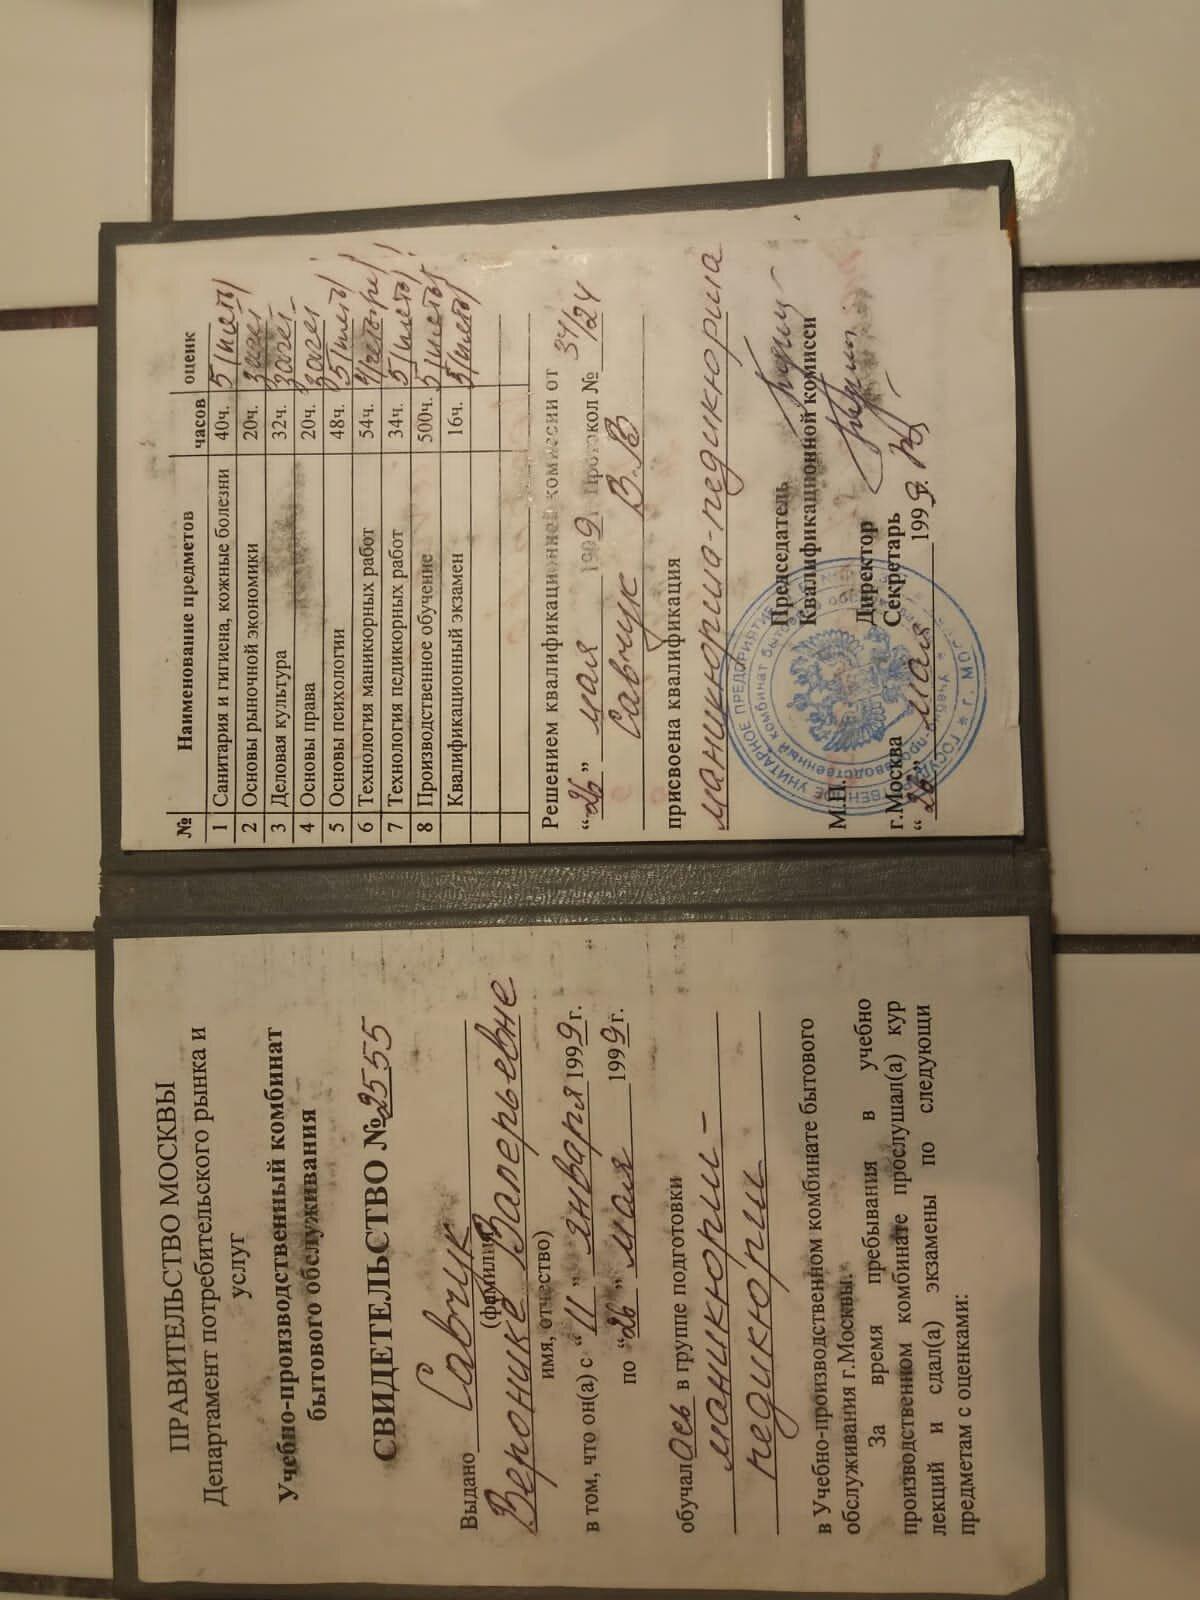 ПРАВИТЕЛЬСТВО МОСКВЫ
Департамент потребительского рынка и
услуг
Учебно-производственный комбинат
бытового обслуживания
СВИДЕТЕЛЬСТВО №2555
Выдано Савчук
(фамилия,
Веронике Валерьевне
имя, отчество)
в том, что он(а) с "11" января 1999г.
по "26" мая 1999г.
обучалась в группе подготовки
маникюрш-
педикюрш
в Учебно-производственном комбинате бытового
обслуживания г.Москвы.
За время пребывания в учебно
производственном комбинате прослушал(а) кур
лекций и сдал(а) экзамены по следующи
предметам с оценками:
№ Наименование предметов часов оценк
1 Санитария и гигиена, кожные болезни 40ч. 5/пять/
2 Основы рыночной экономики 20ч. зачет
3 Деловая культура 32ч. зачет
4 Основы права 20ч. зачет
5 Основы психологии 48ч. 5/пять/
6 Технология маникюрных работ 54ч. 4/четыре/
7 Технология педикюрных работ 34ч. 5/пять/
8 Производственное обучение 500ч. 5/пять/
Квалификационный экзамен 16ч. 5/пять/
Решением квалификационной комиссии от
"26" мая 1999 Протокол № 34/24
Савчук В.В
присвоена квалификация
маникюрша-педикюрша
Председатель
Квалификационной комисси
М.П. Директор
г.Москва Секретарь
"26" мая 1999г.